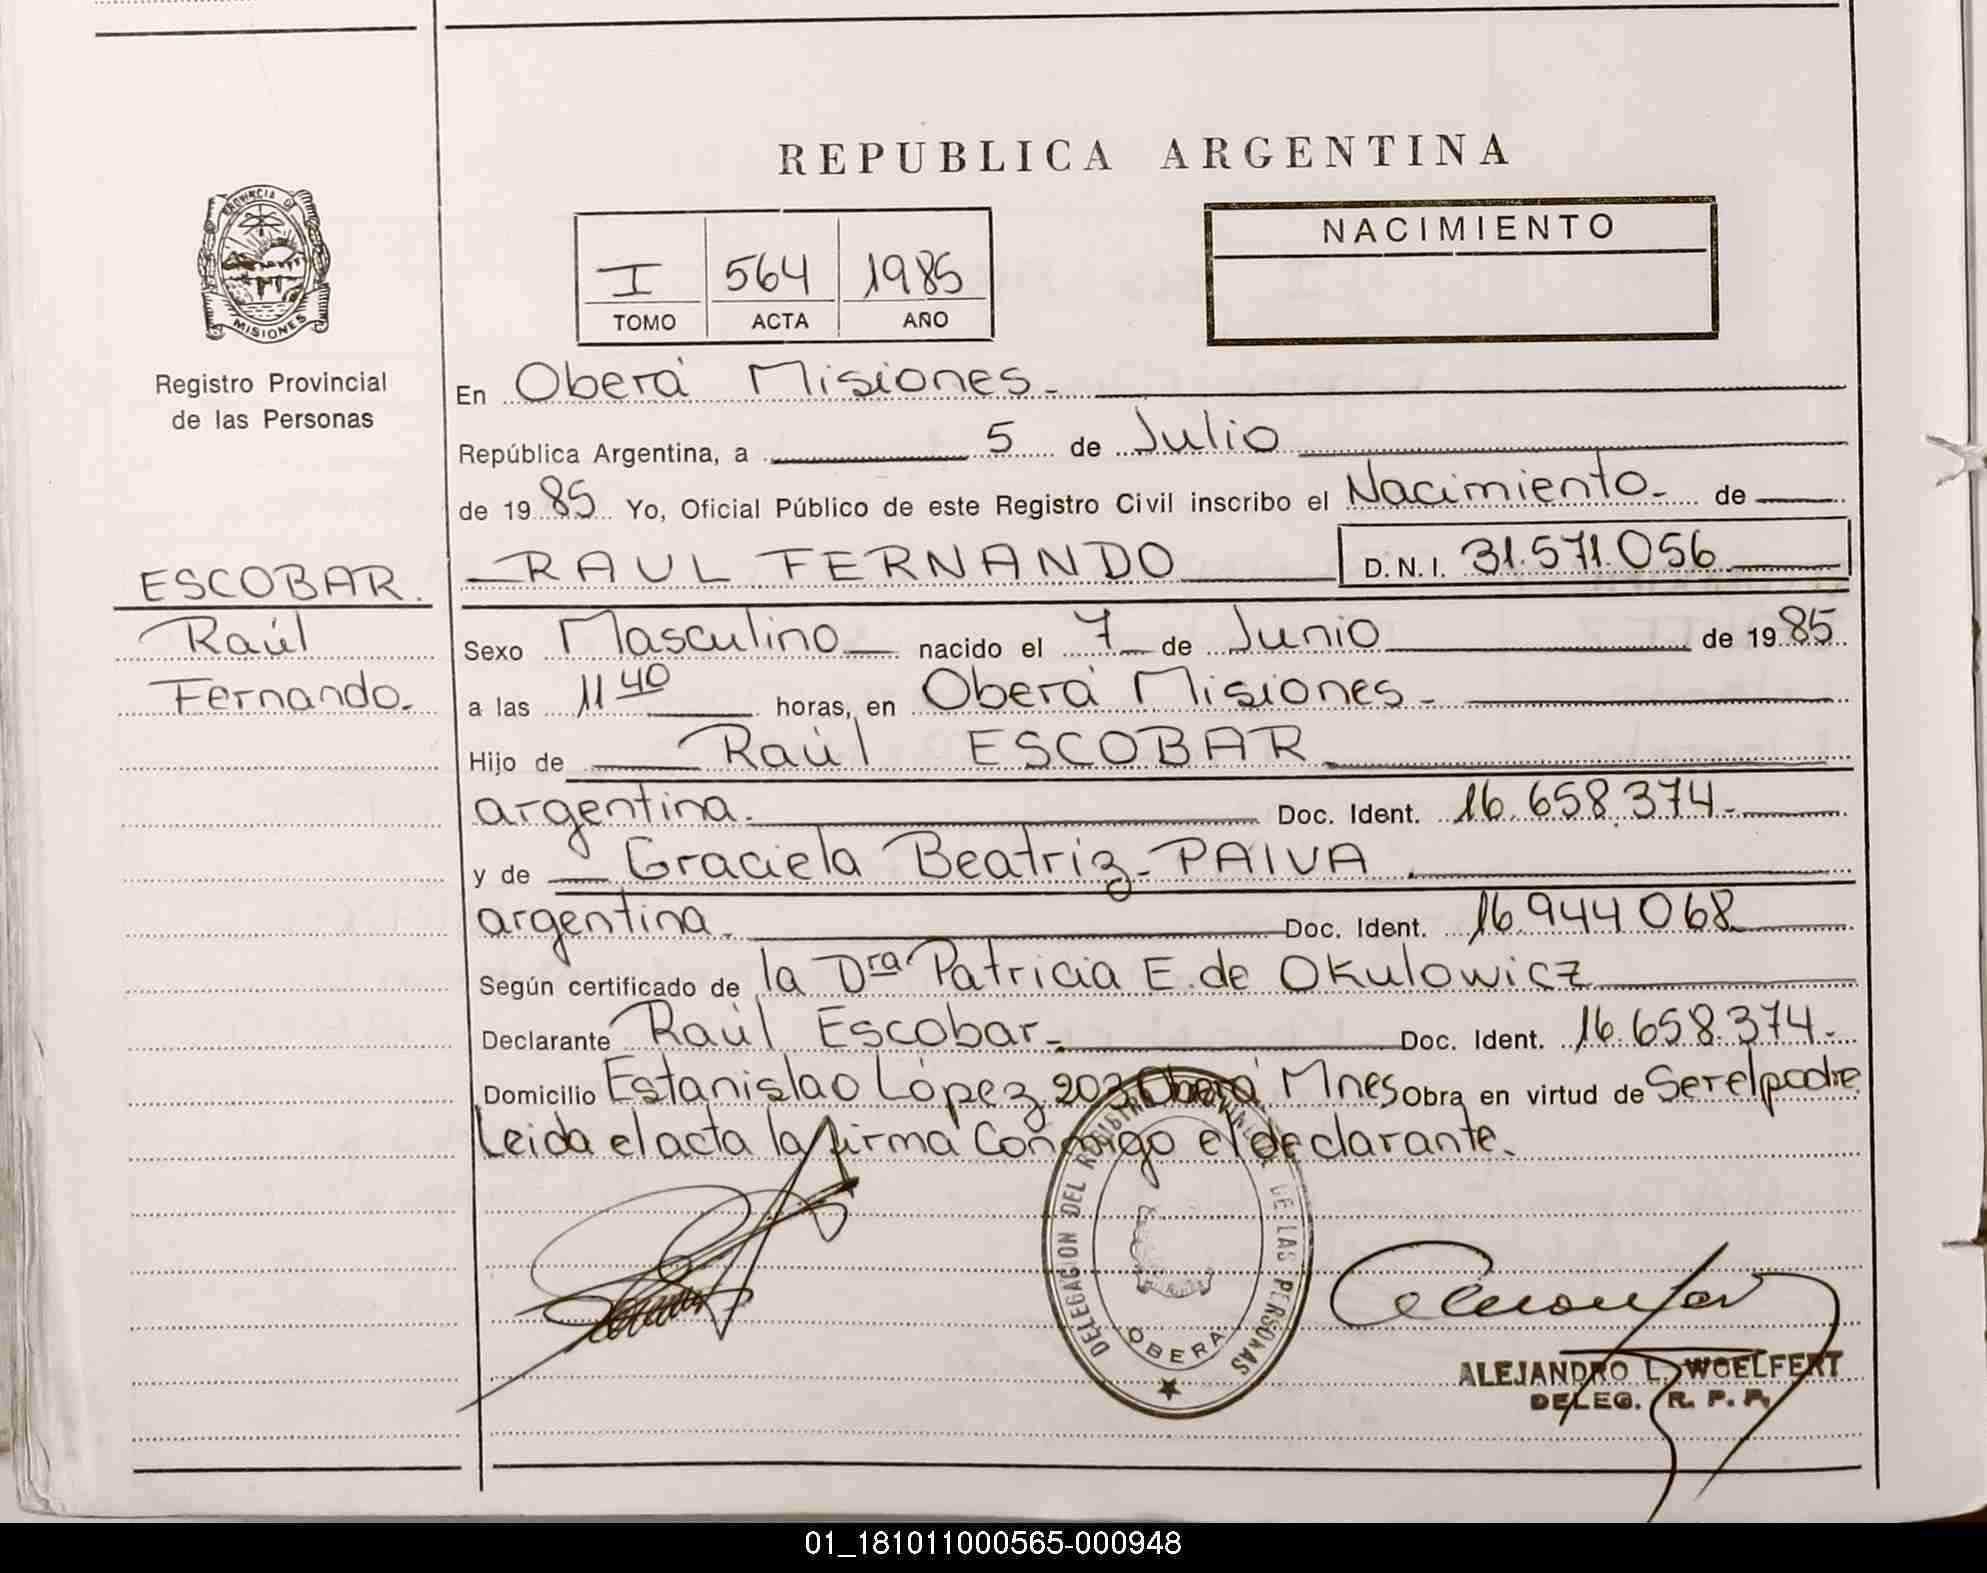 REPUBLICA ARGENTINA
PROVINCIA DE
MISIONES
Registro Provincial
de las Personas
I 564 1985
TOMO ACTA AÑO
NACIMIENTO
En Oberá Misiones.
República Argentina, a 5 de Julio
de 1985 Yo, Oficial Público de este Registro Civil inscribo el Nacimiento. de
ESCOBAR.
Raúl
Fernando.
RAUL FERNANDO D.N.I. 31.571.056
Sexo Masculino nacido el 7 de Junio de 1985
a las 11 40 horas, en Oberá Misiones.
Hijo de Raúl ESCOBAR
argentina. Doc. Ident. 16.658.374.
y de Graciela Beatriz PAIVA
argentina. Doc. Ident. 16.944.068
Según certificado de la Dra Patricia E. de Okulowicz
Declarante Raúl Escobar. Doc. Ident. 16.658.374.
Domicilio Estanislao López 203 Oberá Mnes Obra en virtud de Ser el padre
Leida el acta la firma Conmigo el declarante.
DELEGACION DEL REGISTRO PROVINCIAL DE LAS PERSONAS
OBERA
ALEJANDRO L. WOELFERT
DELEG. R. P. P.
01_181011000565-000948